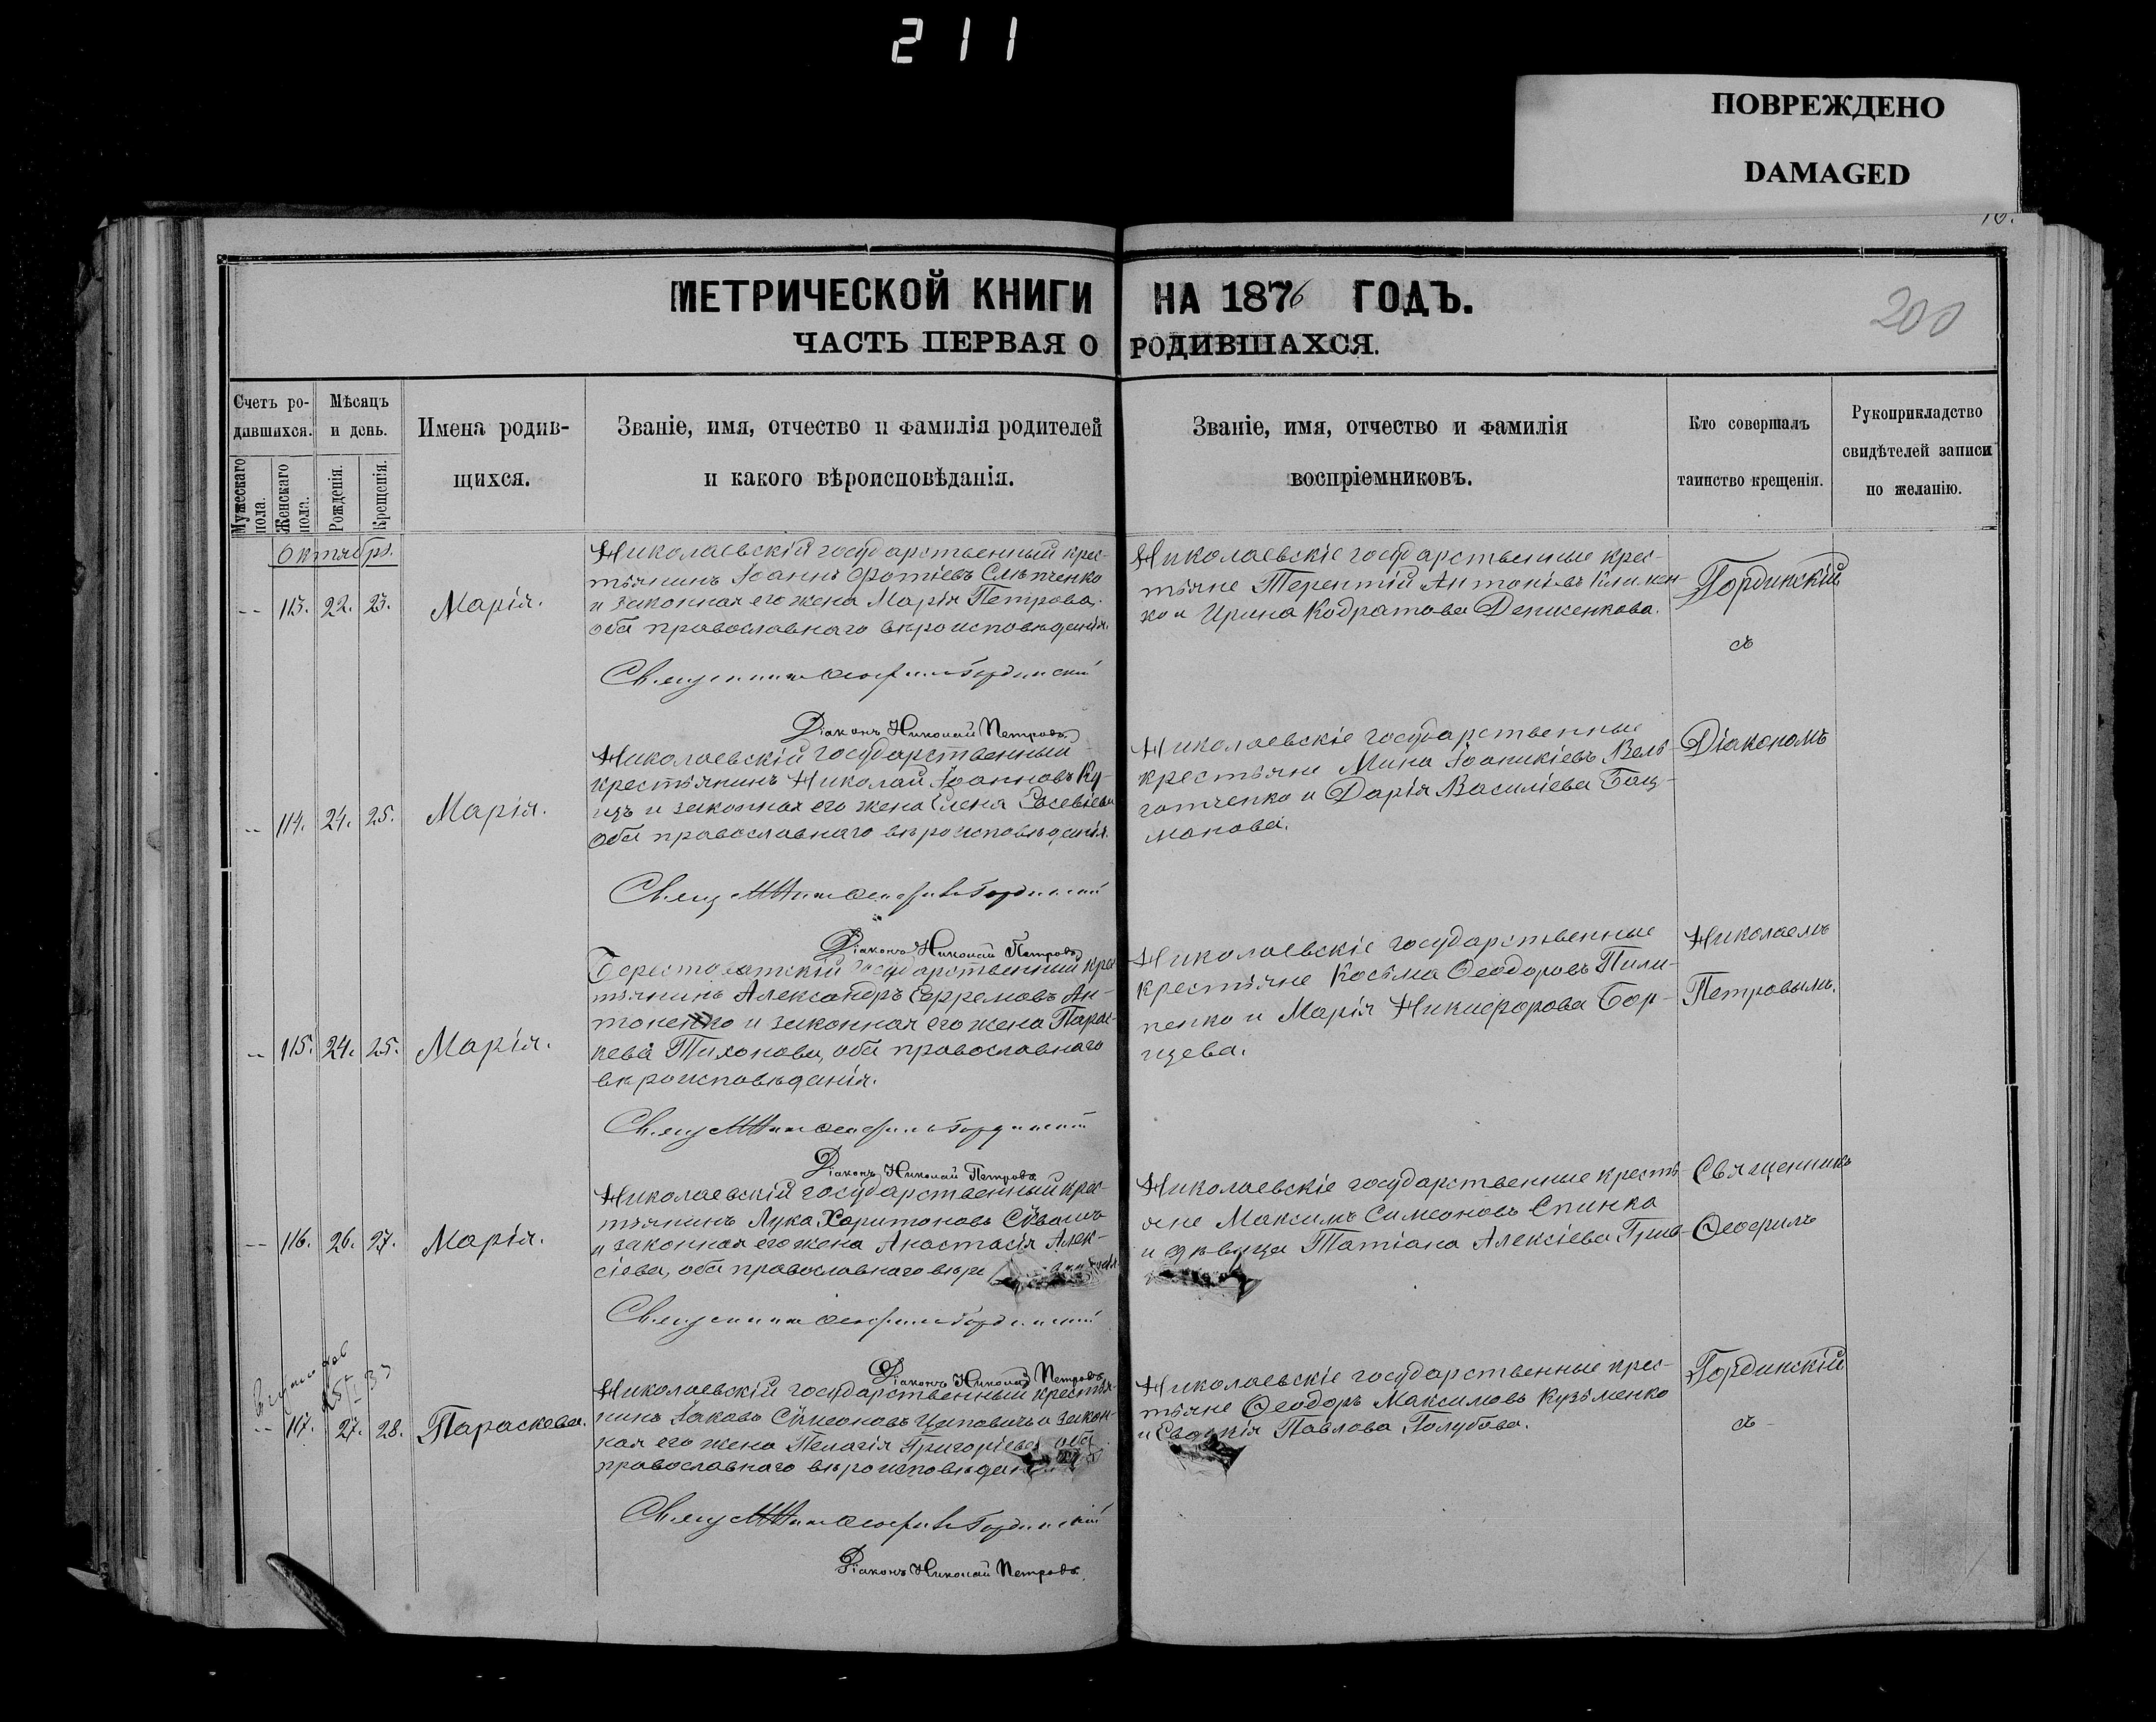 211
ПОВРЕЖДЕНО
DAMAGED
МЕТРИЧЕСКОЙ КНИГИ НА 1876 ГОДЪ.
200
ЧАСТЬ ПЕРВАЯ О РОДИВШАХСЯ.
Счетъ ро-
дившихся.
Мужескаго
пола.
Женскаго
пола.
Мѣсяцъ
и день.
Рожденія.
Крещенія.
Имена родив-
шихся.
Званіе, имя, отчество и фамилія родителей
и какого вѣроисповѣданія.
Званіе, имя, отчество и фамилія
воспріемниковъ.
Кто совершалъ
таинство крещенія.
Рукоприкладство
свидѣтелей записи
по желанію.
Октябрь.
-- 113. 22. 23. Марія.
Николаевскій государственный крес-
тьянинъ Іоаннъ Фотіевъ Слѣпченко
и законная его жена Марія Петрова.
оба православнаго вѣроисповѣданія.
Священникъ Ѳеофилъ Гординскій
Діаконъ Николай Петровъ
Николаевскіе государственные крес-
тьяне Терентій Антоніевъ Климен-
ко и Ирина Кодратова Денисенкова.
Гординскій
съ
-- 114. 24. 25. Марія.
Николаевскій государственный
крестьянинъ Николай Іоанновъ Ку-
цъ и законная его жена Елена Евсевіева
оба православнаго вѣроисповѣданія.
Священникъ Ѳеофилъ Гординскій
Діаконъ Николай Петровъ
Николаевскіе государственные
крестьяне Мина Іоаникіевъ Вель-
готченко и Дарія Василіева Бац-
манова.
Діакономъ
-- 115. 24. 25. Марія.
Берестоватскій государственный крес-
тьянинъ Александръ Ефремовъ Ан-
тоненко и законная его жена Парас-
кева Тихонова, оба православнаго
вѣроисповѣданія.
Священникъ Ѳеофилъ Гординскій
Діаконъ Николай Петровъ
Николаевскіе государственные
крестьяне Косьма Ѳеодоровъ Пили-
пенко и Марія Никифорова Бор-
щева.
Николаемъ
Петровымъ.
-- 116. 26. 27. Марія.
Николаевскій государственный крес-
тьянинъ Лука Харитоновъ
и законная его жена Анастасія Алек-
сіева, оба православнаго
Священникъ Ѳеофилъ Гординскій
Діаконъ Николай Петровъ
Николаевскіе государственные кресть-
яне Максимъ Симеоновъ Спинка
и дѣвица Татіана Алексіева
Священникъ
Ѳеофилъ
-- 117. 27. 28. Параскева.
Николаевскій государственный крестья-
нинъ Іаковъ Симеоновъ и закон-
ная его жена Пелагія Григоріева оба
православнаго
Священникъ Ѳеофилъ Гординскій
Діаконъ Николай Петровъ.
Николаевскіе государственные крес-
тьяне Ѳеодоръ Максимовъ Кузьменко
и Павлова Голубова.
Гординскій
съ